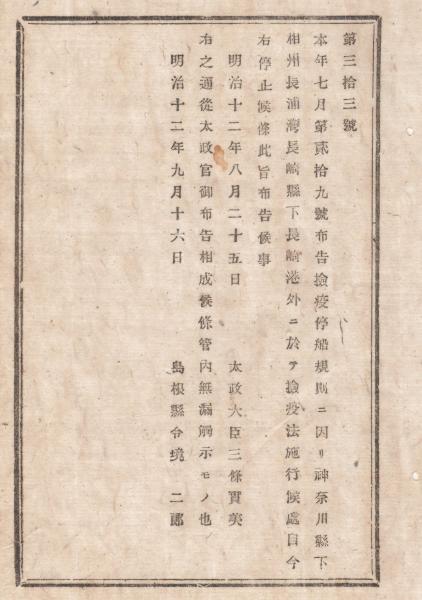 第三拾三號
本年七月第貳拾九號布告撿疫停船規則ニ因リ神奈川縣下
相州長浦灣長崎縣下長崎港外ニ於テ撿疫法施行候處自今
右停止候條此旨布告候事
明治十二年八月二十五日 太政大臣三條實美
右之通從太政官御布告相成候條管內無漏觸示モノ也
明治十二年九月十六日 島根縣令境二郎